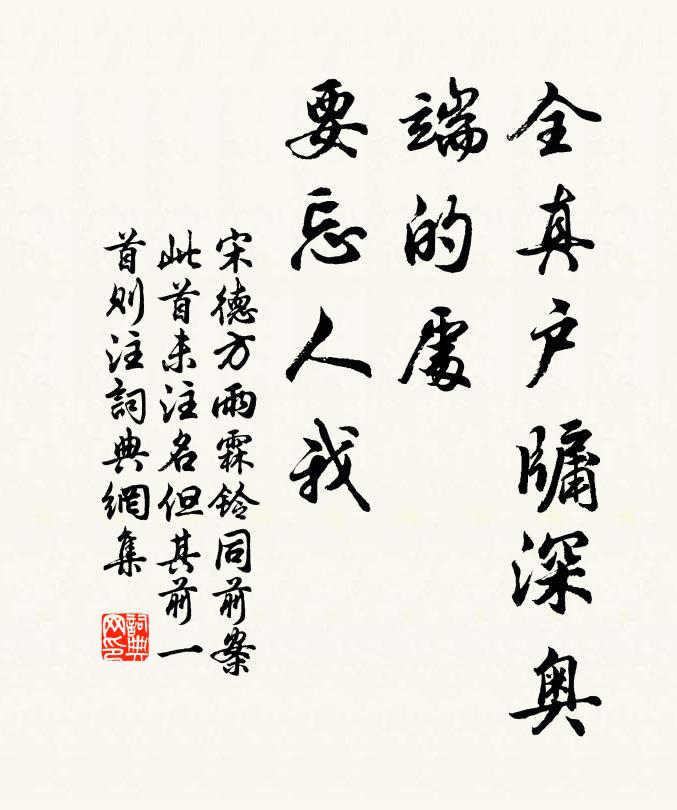 全真户牖深奥
端的處
要忘人我
宋德方雨霖铃同前案
此首未注名但其前一
首则注詞典網集
詞典网印